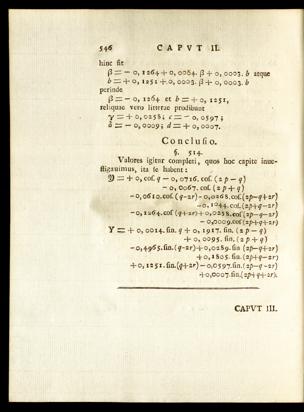 546 CAPVT II.
hinc fit
β = − 0, 1264 + 0, 0084. β + 0, 0003. b atque
b = + 0, 1251 + 0, 0003. β + 0, 0003. b
perinde
β = − 0, 1264 et b = + 0, 1251,
reliquae vero litterae prodibunt
γ = + 0, 0258; c = − 0, 0597;
d = − 0, 0009; d = + 0, 0007.
Conclusio.
§. 514.
Valores igitur completi, quos hoc capite inue-
stigauimus, ita se habent:
= + 0, cos. q − 0, 0716. cos. (2p − q)
− 0, 0067. cos. (2p + q)
− 0, 0610. cos. (q−2r) − 0,0268. cos. (2p−q+2r)
− 0, 1044. cos. (2p+q−2r)
− 0, 1264. cos. (q+2r) + 0,0258. cos. (2p−q−2r)
− 0, 0009. cos. (2p+q+2r)
Y = + 0, 0014. sin. q + 0, 1917. sin. (2p − q)
+ 0, 0095. sin. (2p + q)
− 0, 4965. sin. (q−2r) + 0,0289. sin (2p−q+2r)
+ 0, 1805. sin. (2p+q−2r)
+ 0, 1251. sin. (q+2r) − 0,0597. sin. (2p−q−2r)
+ 0,0007. sin. (2p+q+2r).
CAPVT III.